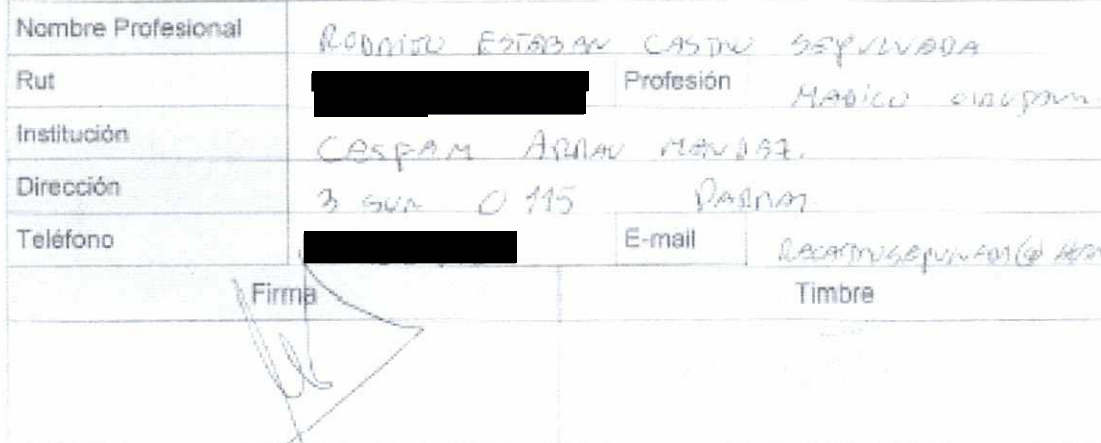 Nombre Profesional RODRIGO ESTEBAN CASTRO SEPULVEDA
Rut Profesión MEDICO CIRUJANO
Institución CESFAM ARRAU MENDEZ.
Dirección 3 SUR 0115 PARRAL
Teléfono E-mail
Firma Timbre